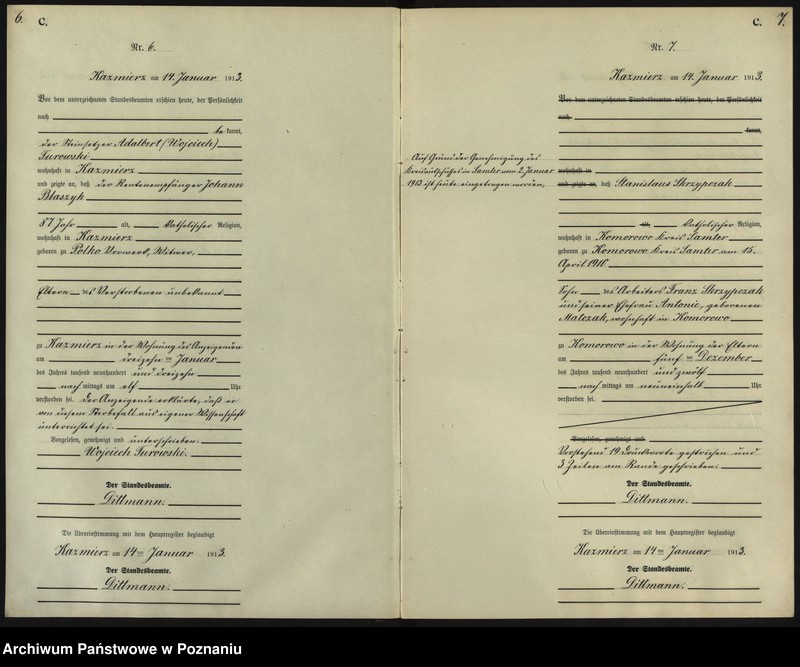 6.
C.
Nr. 6.
Kazmierz am 14. Januar 1913.
Vor dem unterzeichneten Standesbeamten erschien heute, der Persönlichkeit
nach
be kannt,
der Steinsetzer Adalbert (Wojciech)
Turowski
wohnhaft in Kazmierz
und zeigte an, daß der Rentenempfänger Johann
Blaszyk
87 Jahr alt, katholischer Religion,
wohnhaft in Kazmierz
geboren zu Polko Vorwerk, Witwer,
Eltern des Verstorbenen unbekannt
zu Kazmierz in der Wohnung des Anzeigenden
am dreizehn ten Januar
des Jahres tausend neunhundert und dreizehn
nach mittags um elf Uhr
verstorben sei. Der Anzeigende erklärte, daß er
von diesem Sterbefall aus eigener Wissenschaft
unterrichtet sei.
Vorgelesen, genehmigt und unterschrieben.
Wojciech Turowski.
Der Standesbeamte.
Dittmann.
Die Übereinstimmung mit dem Hauptregister beglaubigt
Kazmierz am 14 ten Januar 1913.
Der Standesbeamte.
Dittmann.
C.
7.
Nr. 7.
Kazmierz am 14. Januar 1913.
Vor dem unterzeichneten Standesbeamten erschien heute, der Persönlichkeit
nach
kannt,
Auf Grund der Genehmigung des
Kreisausschusses in Samter vom 2. Januar
1913 ist heute eingetragen worden,
wohnhaft in
und zeigte an, daß Stanislaus Skrzypczak
alt, katholischer Religion,
wohnhaft in Komorowo Kreis Samter
geboren zu Komorowo Kreis Samter am 15.
April 1910
Sohn des Arbeiters Franz Skrzypczak
und seiner Ehefrau Antonie, geborenen
Matczak, wohnhaft in Komorowo
zu Komorowo in der Wohnung der Eltern
am fünf ten Dezember
des Jahres tausend neunhundert und zwölf
nach mittags um neuneinhalb Uhr
verstorben sei.
Vorgelesen, genehmigt und
Vorstehend 19 Druckworte gestrichen und
3 Zeilen am Rande geschrieben.
Der Standesbeamte.
Dittmann.
Die Übereinstimmung mit dem Hauptregister beglaubigt
Kazmierz am 14 ten Januar 1913.
Der Standesbeamte.
Dittmann.
Archiwum Państwowe w Poznaniu